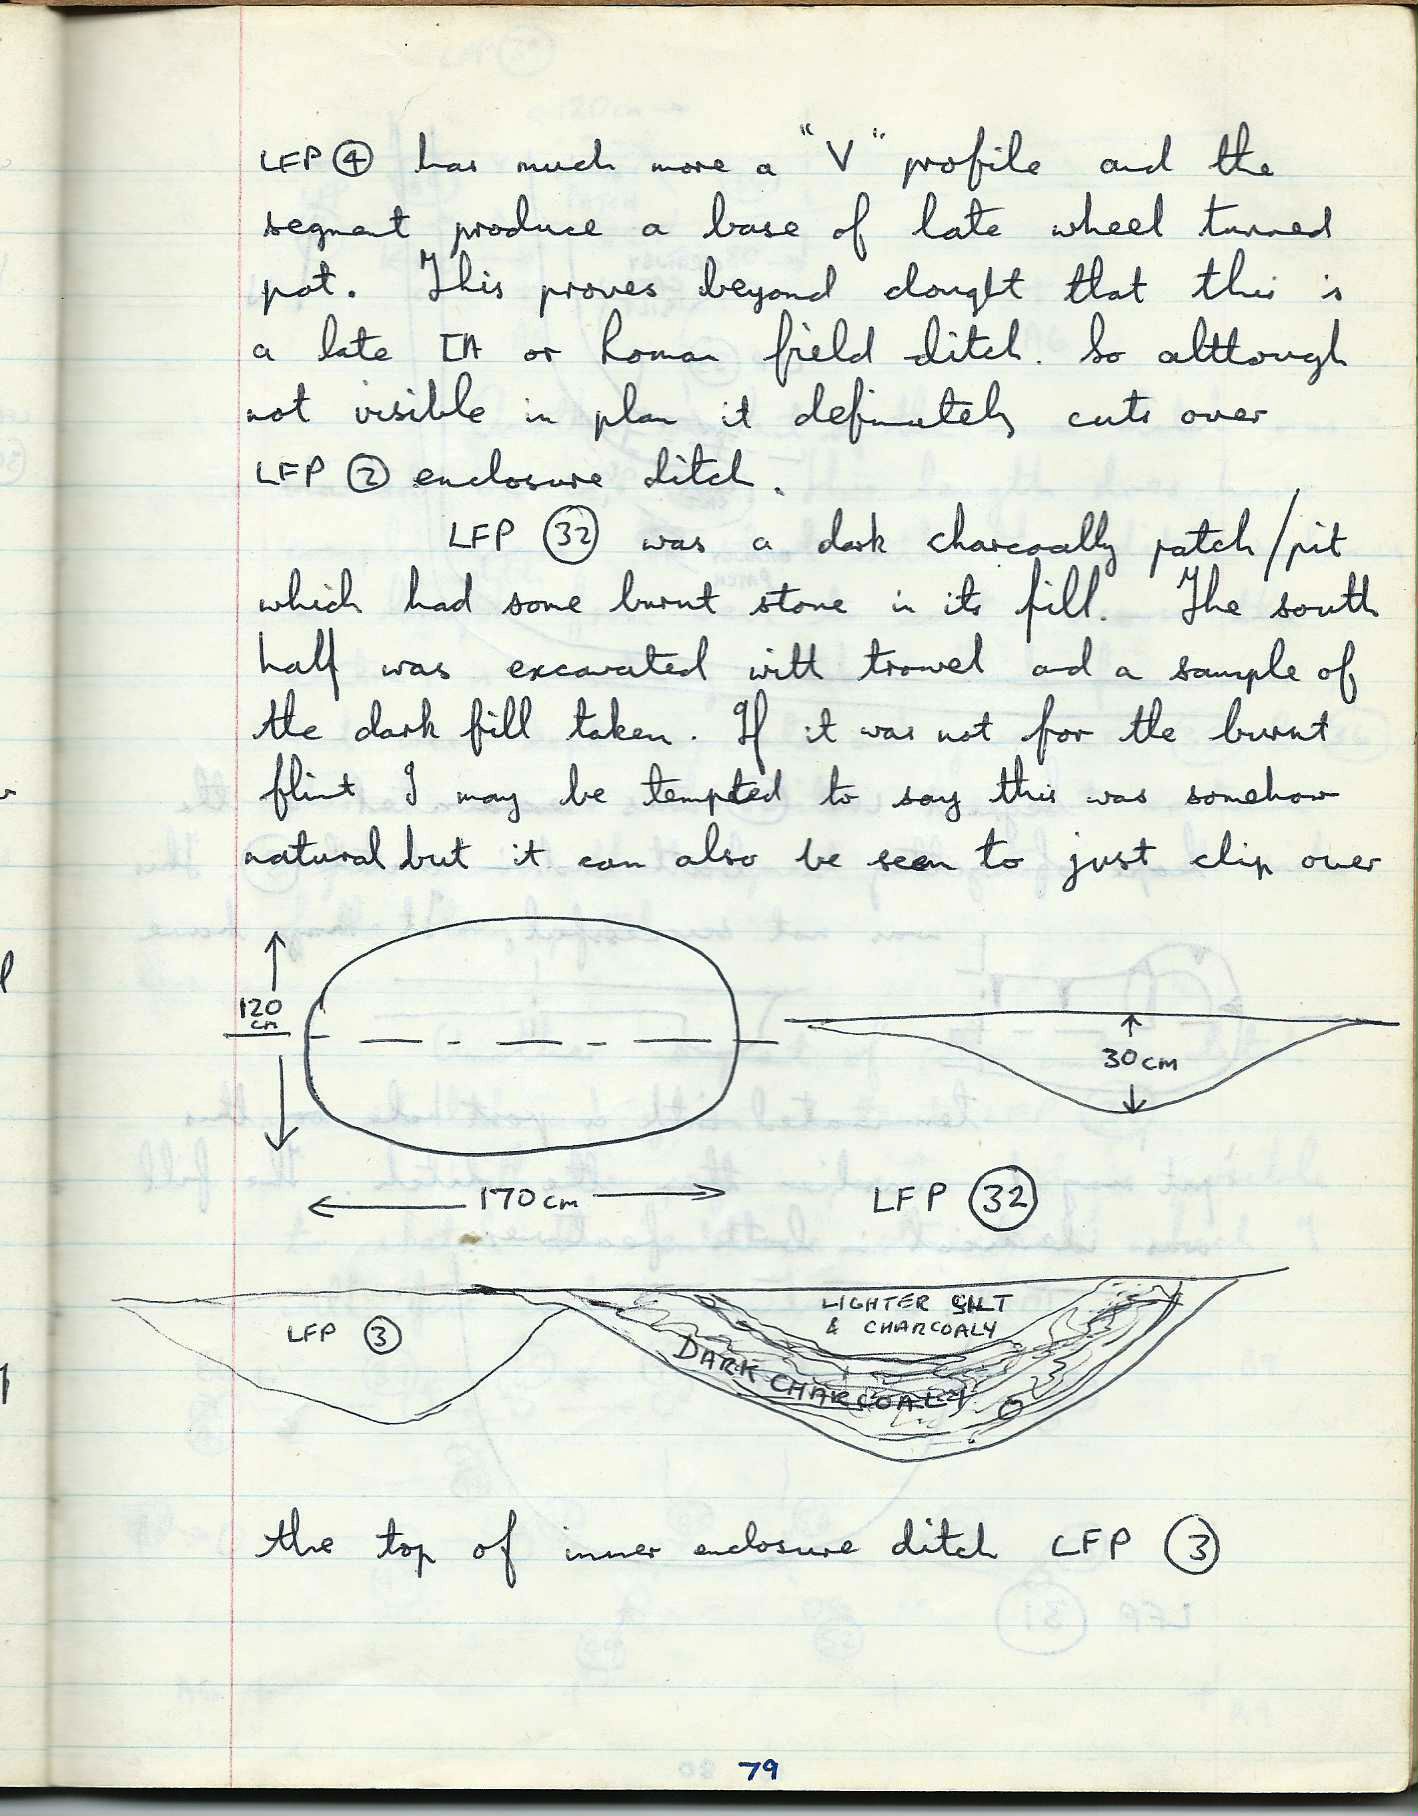 LFP ④ has much more a "V" profile and the
segment produce a base of late wheel turned
pot. This proves beyond dought that this is
a late IA or Roman field ditch. So although
not visible in plan it definately cuts over
LFP ② enclosure ditch.
LFP ㉜ was a dark charcoally patch/pit
which had some burnt stone in its fill. The south
half was excavated with trowel and a sample of
the dark fill taken. If it was not for the burnt
flint I may be tempted to say this was somehow
natural but it can also be seen to just clip over
120
cm
30cm
170cm
LFP ㉜
LFP ③
LIGHTER SILT
& CHARCOALY
DARK CHARCOALY
the top of inner enclosure ditch LFP ③
79